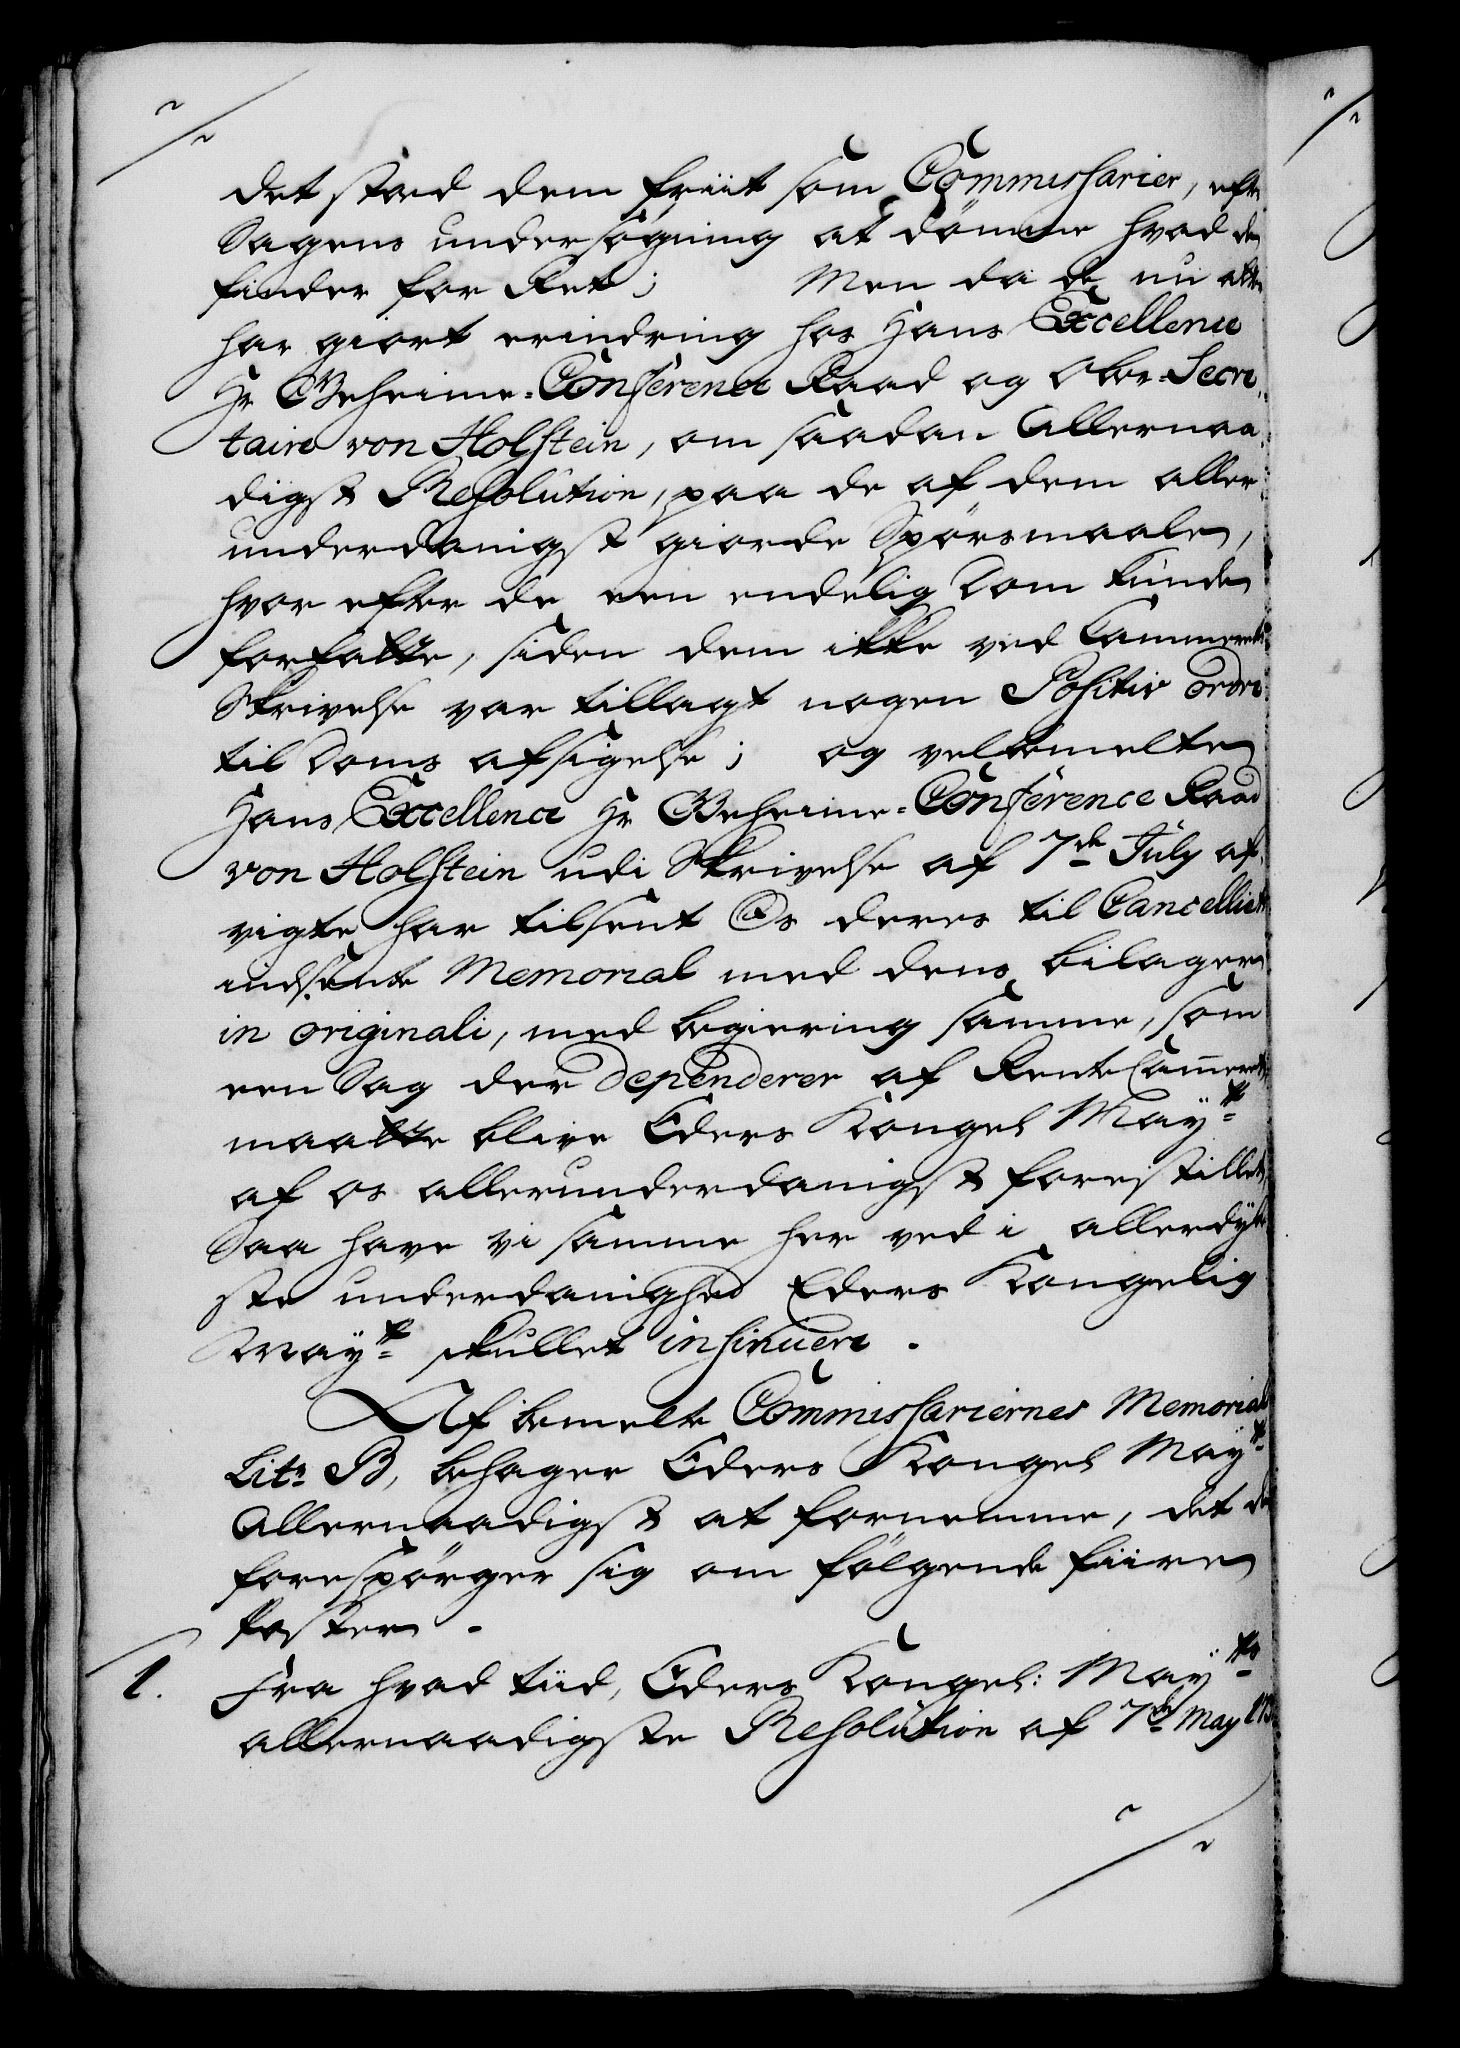 det stoed dem friit som Commissarier, efter
Sagens undersøgning at dømme hvad de
finder for Ret; Men da de nu atter
har giort erindring hos Hans Excellence
Hr Geheime-Conference Raad og Ober-Secre-
taire von Holstein, om saadan Allernaa-
digst Resolution, paa de af dem aller
underdanigst giorde Spørsmaaler,
hvor efter de een endelig Dom kunde
forfatte, siden dem ikke ved Cammerets
Skrivelse var tillagt nogen Positiv ordre
til Doms afsigelse; og velbemelte
Hans Excellence Hr Geheime-Conference Raad
von Holstein udi Skrivelse af 7de July af-
vigte har tilsent Os deres til Cancelliet
indsente Memorial med dens bilager
in originali, med begiering samme, som
een Sag der dependerer af Rente Cammeret,
maatte blive Eders Kongel May:tt
af os allerunderdanigst forestillet,
Saa have vi samme her ved i allerdyb-
ste underdanighed Eders Kongelig
May:tt skullet insinuere.
Af bemelte Commissariernes Memorial
Litr B, behager Eders Kongel May:tt
Allernaadigst at fornemme, det de
forespørger sig om følgende fiire
Poster.
1. Fra hvad tiid, Eders Kongel: May:tts
allernaadigste Resolution af 7de May 173